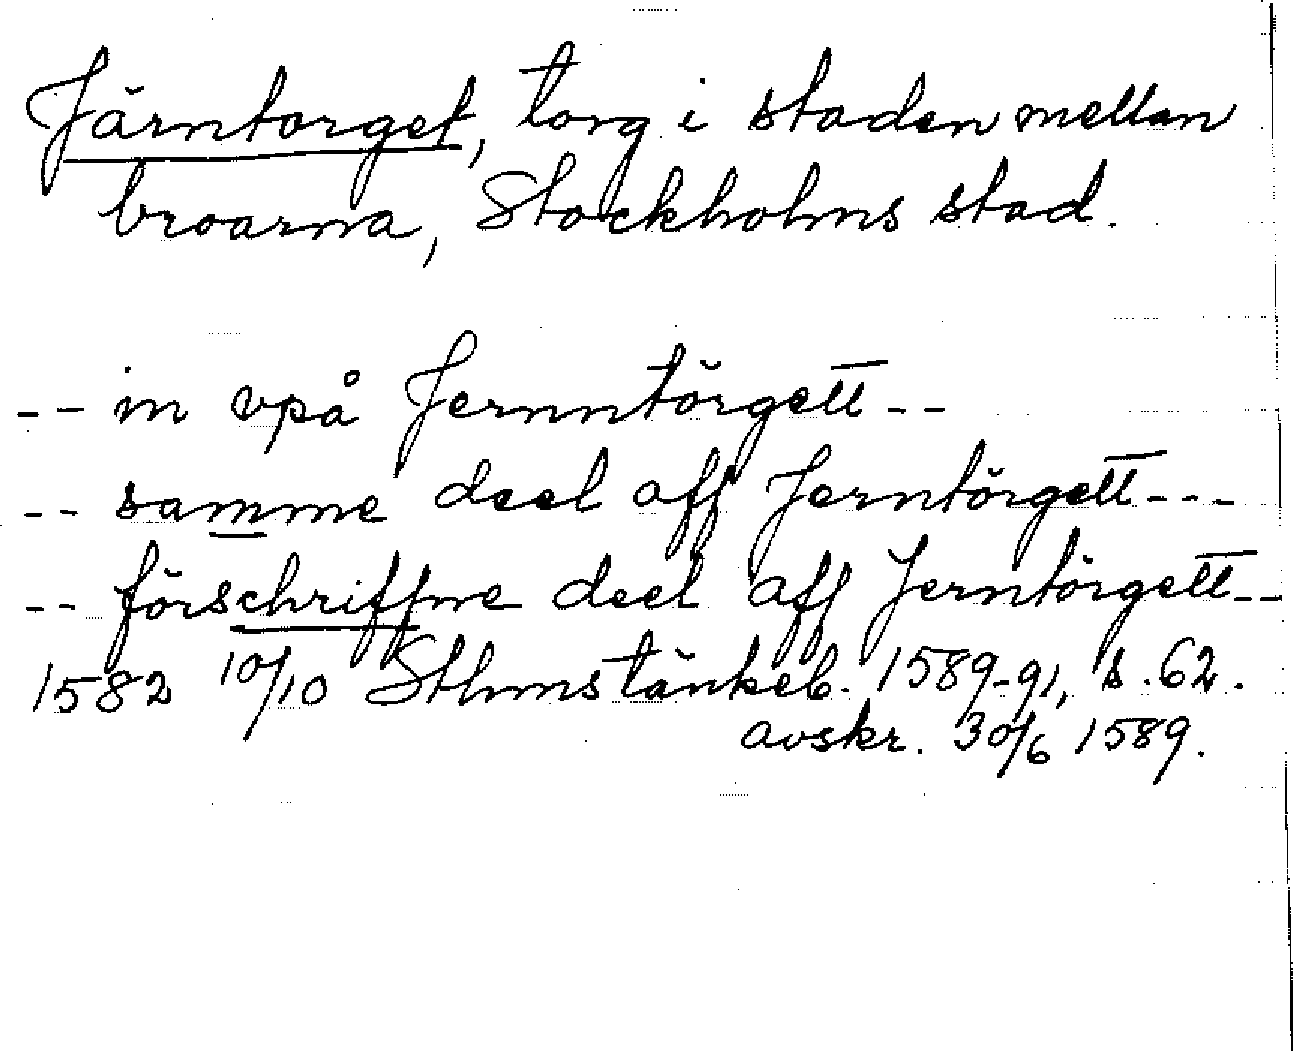 Järntorget, torg i staden mellan
broarna, Stockholms stad.
-- in vpå Jernntörgett --
-- samme deel aff Jerntörgett ---
-- förschriffne deel aff Jerntörgett --
1582 10/10 Sthms tänkeb. 1589-91, s. 62.
avskr. 30/6 1589.